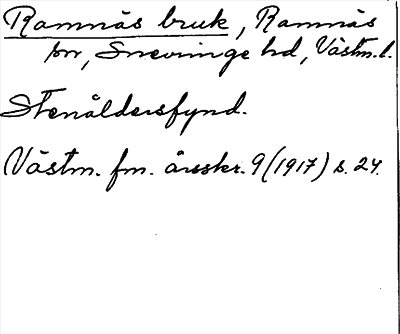 Ramnäs bruk, Ramnäs
sn, Snevringe hd, Västm.l.
Stenåldersfynd.
Västm. fm. årsskr. 9 (1917) s. 24.